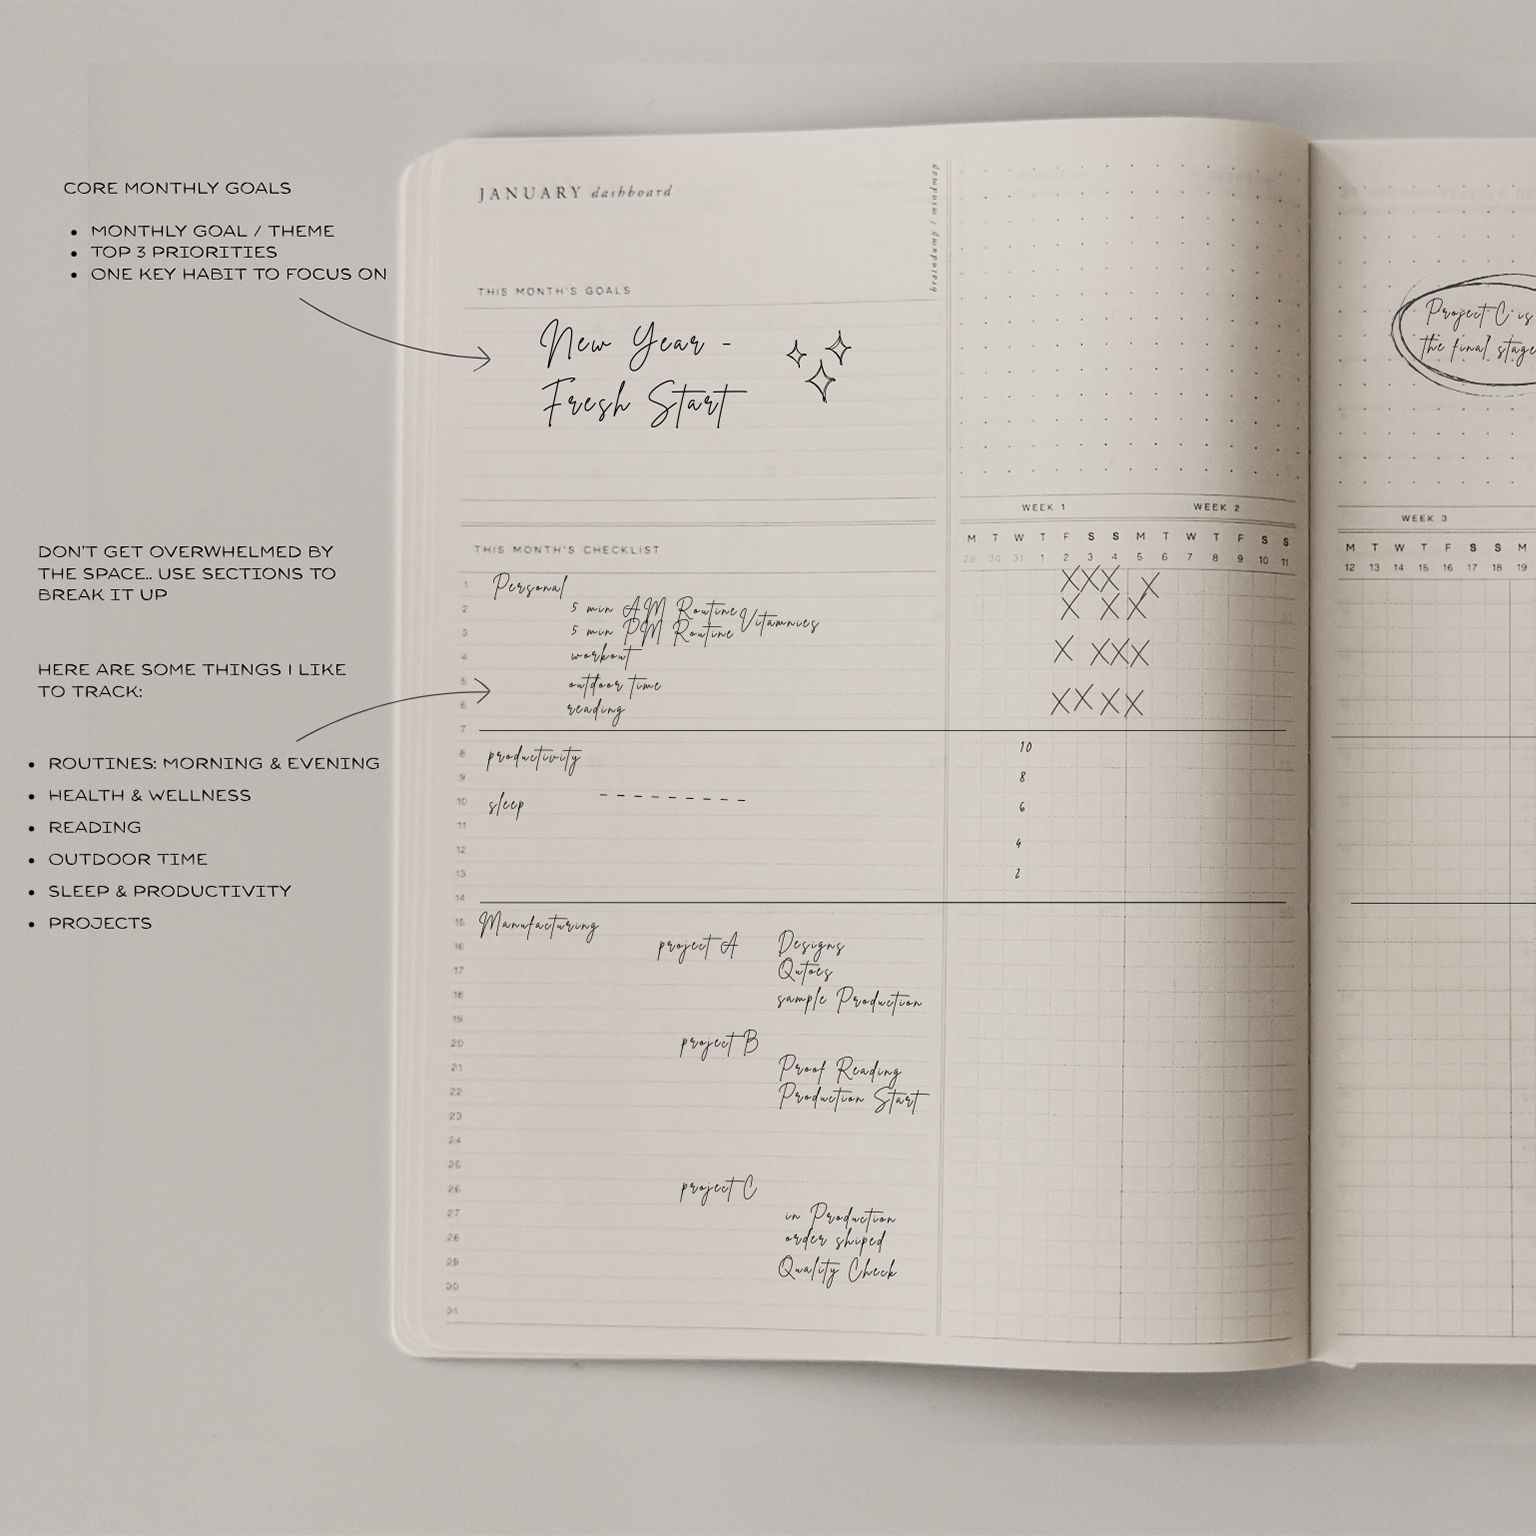 CORE MONTHLY GOALS
• MONTHLY GOAL / THEME
• TOP 3 PRIORITIES
• ONE KEY HABIT TO FOCUS ON
DON'T GET OVERWHELMED BY
THE SPACE.. USE SECTIONS TO
BREAK IT UP
HERE ARE SOME THINGS I LIKE
TO TRACK:
• ROUTINES: MORNING & EVENING
• HEALTH & WELLNESS
• READING
• OUTDOOR TIME
• SLEEP & PRODUCTIVITY
• PROJECTS
JANUARY dashboard
THIS MONTH'S GOALS
New Year -
Fresh Start
braindump / mindmap
Project C is
the final stage
THIS MONTH'S CHECKLIST
1 Personal
2 5 min AM Routine Vitamnies
3 5 min PM Routine
4 workout
5 outdoor time
6 reading
7
8 productivity
9
10 sleep
11
12
13
14
15 Manufacturing
16 project A Designs
17 Qutoes
18 sample Production
19
20 project B
21 Proof Reading
22 Production Start
23
24
25
26 project C
27 in Production
28 order shiped
29 Quality Check
30
31
WEEK 1 WEEK 2
M T W T F S S M T W T F S S
29 30 31 1 2 3 4 5 6 7 8 9 10 11
X X X X
X X X
X X X X
X X X X
10
8
6
4
2
WEEK 3
M T W T F S S M
12 13 14 15 16 17 18 19